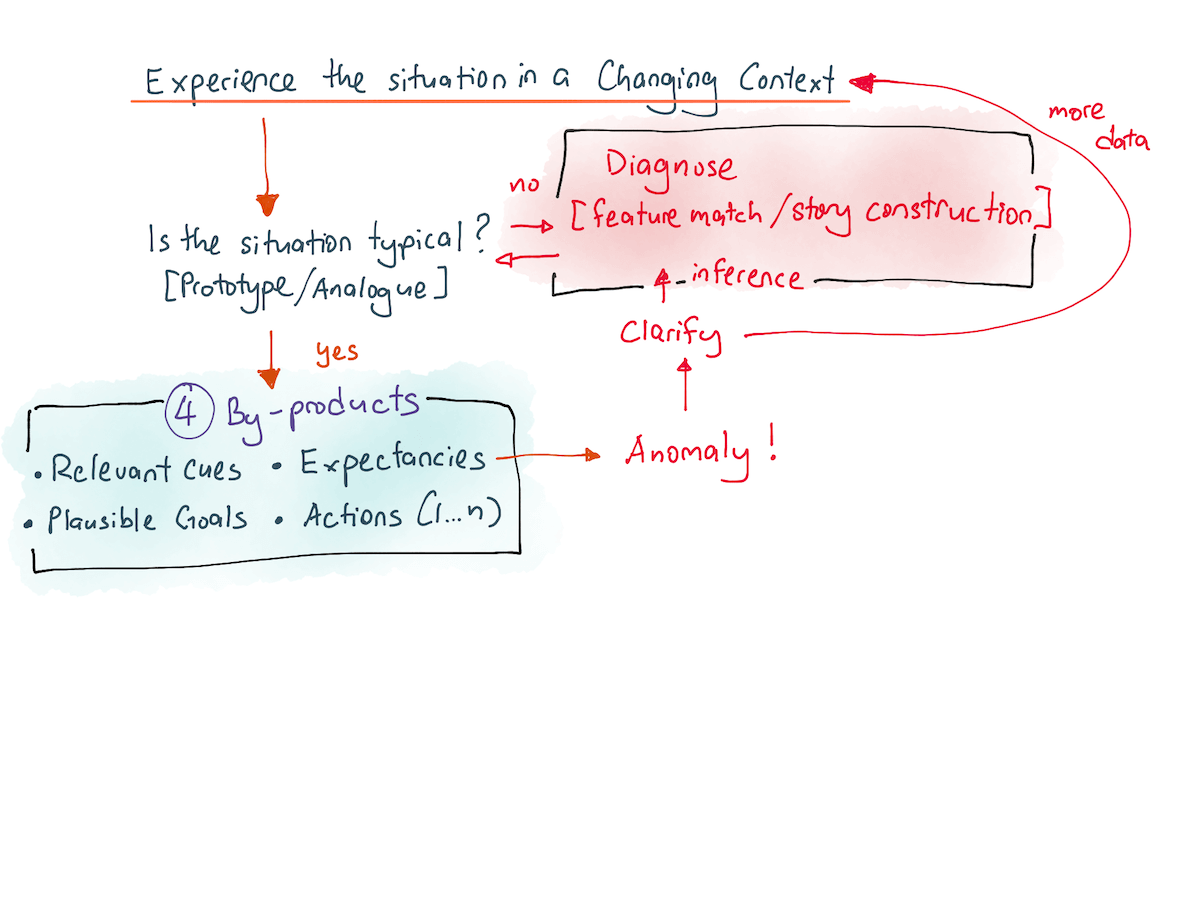 Experience the situation in a Changing Context
more
data
Diagnose
no
[feature match/story construction]
Is the situation typical?
[Prototype/Analogue]
inference
Clarify
yes
4 By-products
Anomaly!
• Relevant cues • Expectancies
• Plausible Goals • Actions (1...n)